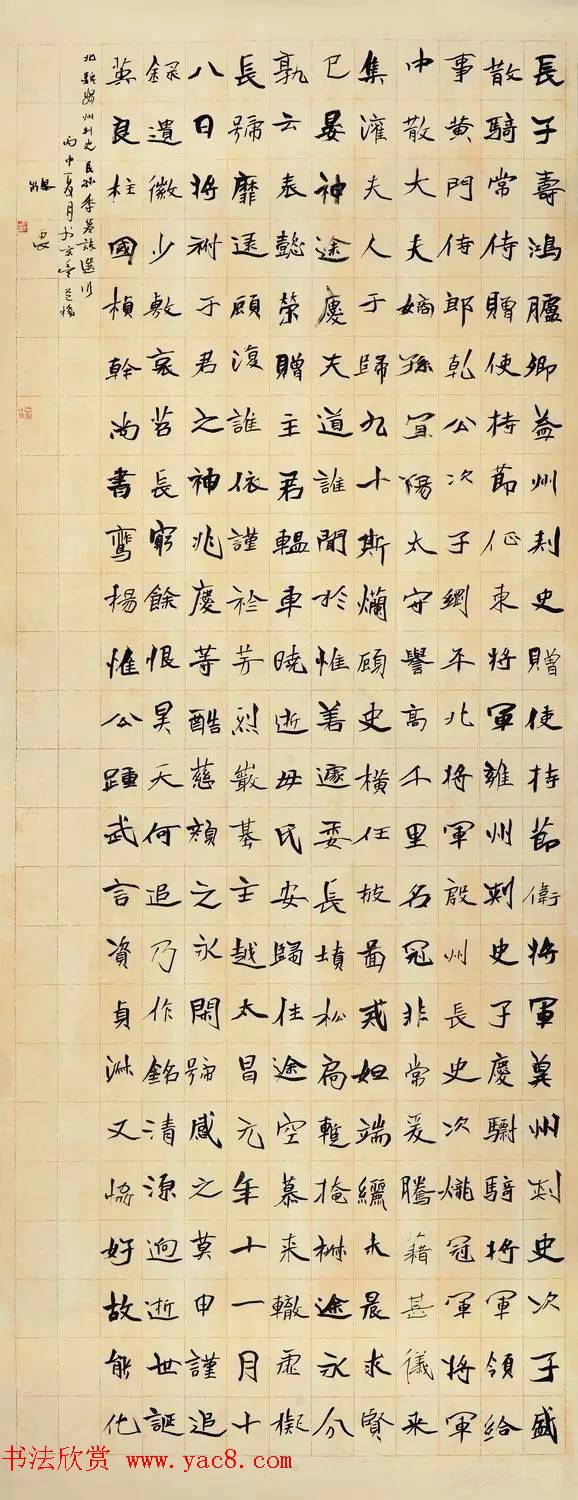 長子壽鴻臚卿益州刺史贈使持節衛將軍冀州刺史次子盛
散騎常侍贈使持節征東將軍雍州刺史子慶驃騎將軍領給
事黃門侍郎乾公次子網平北將軍殷州長史次熾冠軍將軍
中散大夫嫡孫宜陽太守譽高千里名冠非常爰騰藉甚儀來
集夫人于歸九十斯爛顧史橫任披圖戒妲端纚未晨求賢
已晏神途慶夫道誰聞於惟善邃委長墳松扃蹔掩途永分
孰云表懿榮贈主君轀車曉逝毋民安歸往途空慕來轍虛擬
長號靡逮顧復誰依謹於芳烈巖墓主越太昌元年十一月十
八日將祔于君之神兆慶等酷慈顏之永閟號感之莫申謹追
錄遺徽少敷哀苕長窮餘恨昊天何追乃作銘清源迥逝世誕
蒸良柱國楨幹尚書鸞楊惟公踵武言資貞淋又好故能化
北魏州刺史長孫季墓誌選
丙申夏月書於
书法欣赏 www.yac8.com